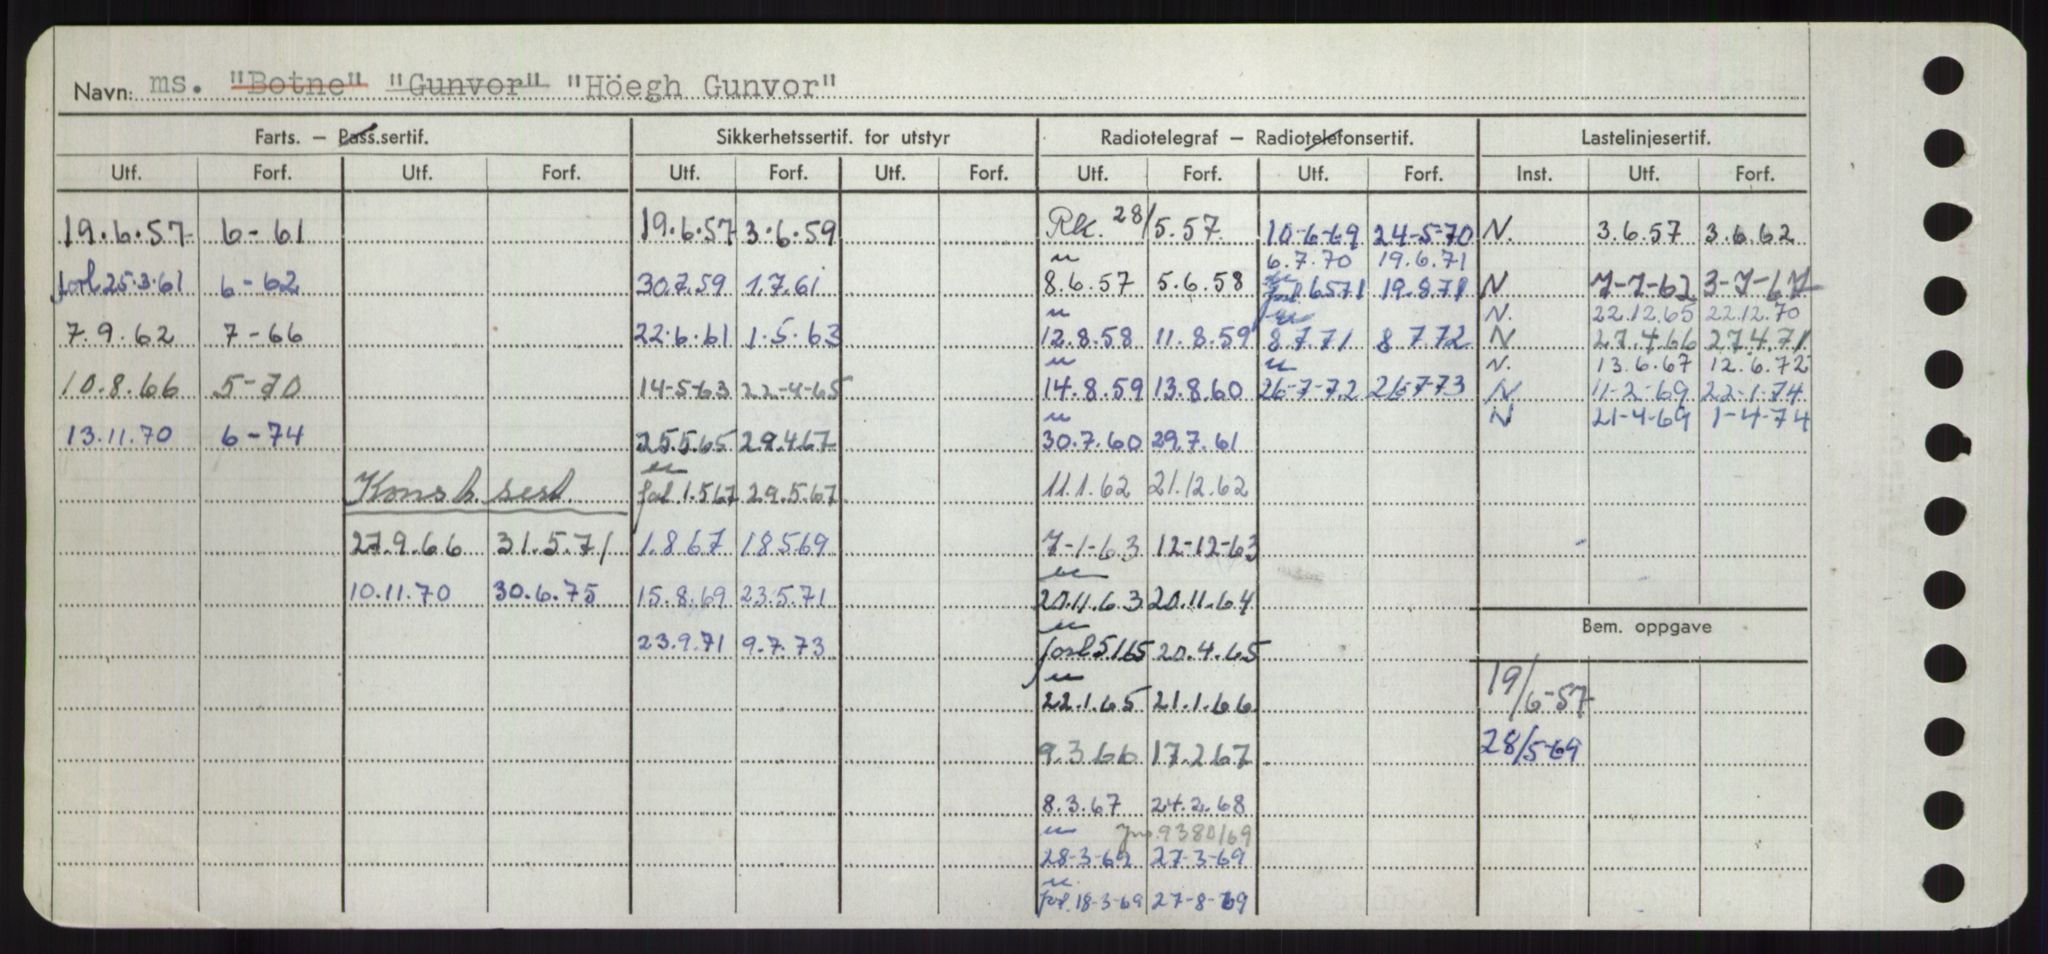 Navn: ms. "Botne" "Gunvor" "Höegh Gunvor"
Farts. — Pass.sertif. Sikkerhetssertif. for utstyr Radiotelegraf — Radiotelefonsertif. Lastelinjesertif.
Utf. Forf. Utf. Forf. Utf. Forf. Utf. Forf. Utf. Forf. Utf. Forf. Inst. Utf. Forf.
19.6.57 6-61 19.6.57 3.6.59 Rk. 28/5.57. 10-6-69 24-5-70 N. 3.6.57 3.6.62
6.7.70 19.6.71
forl 25.3.61 6-62 30.7.59 1.7.61 8.6.57 5.6.58 6571 19.8.71 N 7-7-62 3-7-67
N. 22.12.65 22.12.70
7.9.62 7-66 22.6.61 1.5.63 12.8.58 11.8.59 8771 8772 N 27.4.66 27.4.71
N. 13.6.67 12.6.72
10.8.66 5-70 14-5-63 22-4-65 14.8.59 13.8.60 26-7-72 26-7-73 N 11-2-69 22-1-74
N 21-4-69 1-4-74
13.11.70 6-74 25.5.65 29.4.67 30.7.60 29.7.61
Konst. sert. 1.5.67 29.5.67 11.1.62 21.12.62
27.9.66 31.5.71 1.8.67 18.5.69 7-1-63 12-12-63
10.11.70 30.6.75 15.8.69 23.5.71 20.11.63 20.11.64
Bem. oppgave
23.9.71 9.7.73 forl 5165 20.4.65
19/6-57
22.1.65 21.1.66
28/5-69
9.3.66 17.2.67
8.3.67 24.2.68
9380/69
28-3-69 27-3-69
18-3-69 27-8-69